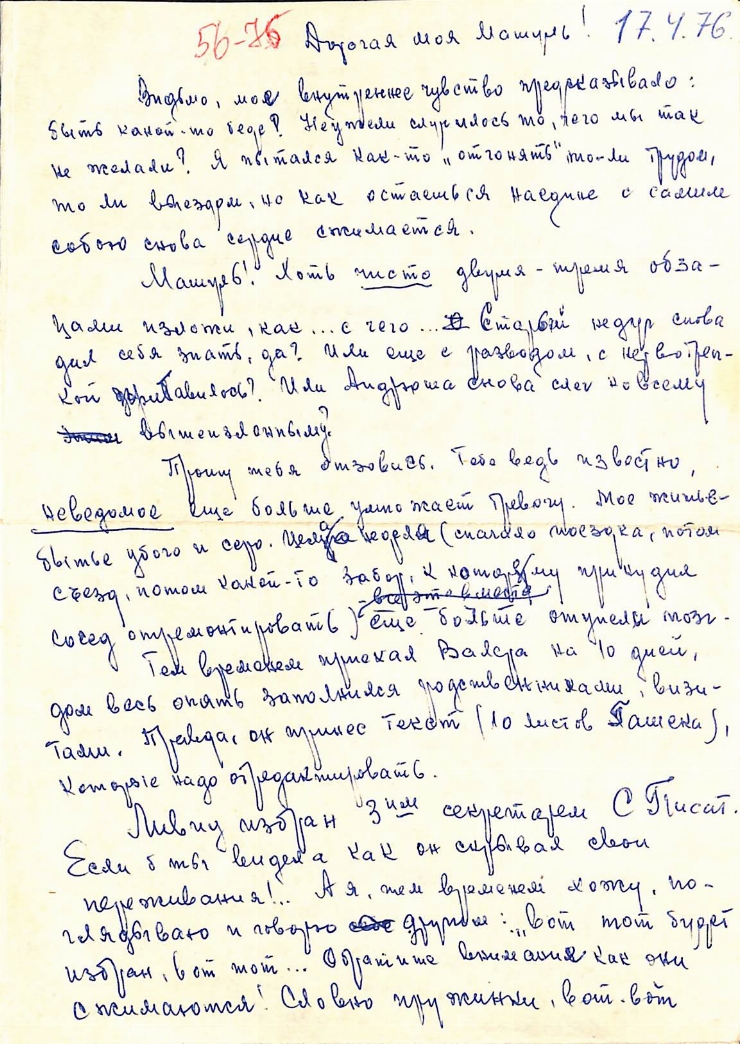 56-76 Дорогая моя Машуль! 17.4.76.
Видимо, мое внутреннее чувство предсказывало:
быть какой-то беде? Неужели случилось то, чего мы так
не желали? Я пытался как-то „отгонять" то-ли трудом,
то ли выездом, но как остаешься наедине с самим
собою снова сердце сжимается.
Машуль! Хоть чисто двумя-тремя абза-
цами изложи, как... с чего... Старый недуг снова
дал себя знать, да? Или еще с разводом, с нервотреп-
кой Или Андрюша снова слег ко всему
вышеизложенному?
Прошу тебя отзовись. Тебе ведь известно,
неведомое еще больше умножает тревогу. Мое житье-
бытье убого и серо. Целая неделя (сначала поездка, потом
съезд, потом какой-то забор, к которому принудил
все это вместе
сосед отремонтировать) еще больше отупели мозг-
Тем временем приехал на 10 дней,
дом весь опять заполнился родственниками, визи-
тами. Правда, он принес текст (10 листов Гашека),
которые надо отредактировать.
Ливиу избран 3им секретарем С Писат.
Если б ты видела как он скрывал свои
переживания!.. А я, тем временем хожу, по-
глядываю и говорю другим: „вот тот будет
избран, вот тот... Обратите внимания как они
сжимаются! Словно пружинки, вот-вот